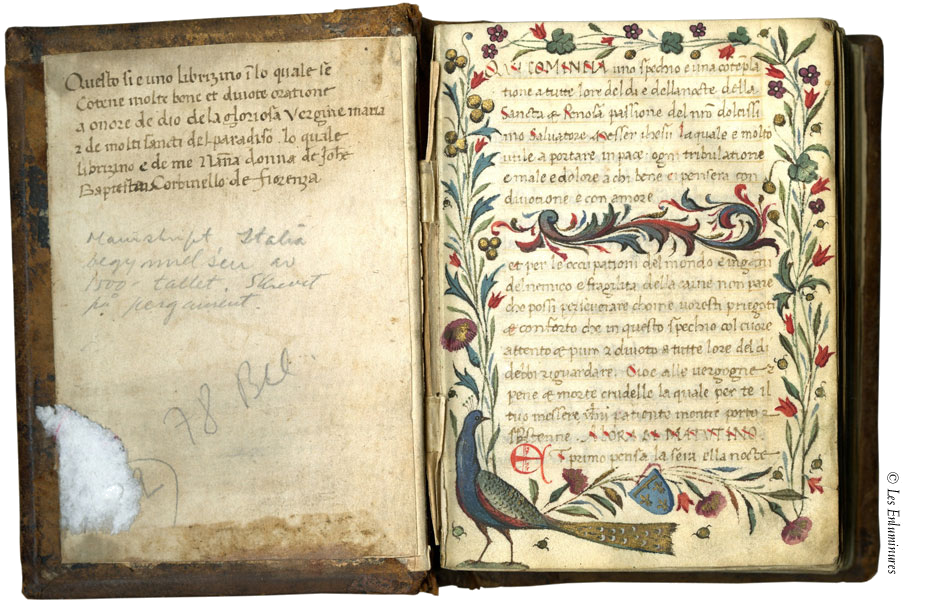 Questo si e uno librizino ĩ lo quale se
Cotene molte bone et divote oratione
a onore de dio de la gloriosa Vergine maria
2 de molti sancti del paradiso. lo quale
librizino e de me Nãna donna de Johẽ
Baptesta Corbinello de fiorenza
Manuskript, Italia
begynnelsen av
1500-tallet. Skrevet
på pergament.
78 Bee
QUI COMINCIA uno spechio e una cõtẽpla
tione a tutte lore del di e della nocte della
Sancta & Penosa passione del nr̃o dolcissi
mo Salvatore Messer ihesu la quale e molto
utile a portare in pace ogni tribulatione
e male e dolore a chi bene ci pensera con
divotione e con amore
et per le occupationi del mondo e ingani
del nemico e fragilita della carne non pare
che possi perseverare choi ne voresti
& conforto che in questo spechio col cuore
attento & puro 2 divoto a tutte lore del di
debbi riguardare. Cioe alle vergogne
pene & morte crudelle la quale per te il
tuo messere
sostenne. ALORA AL MATUTINO
primo pensa la sera ella nocte
© Les Enluminures